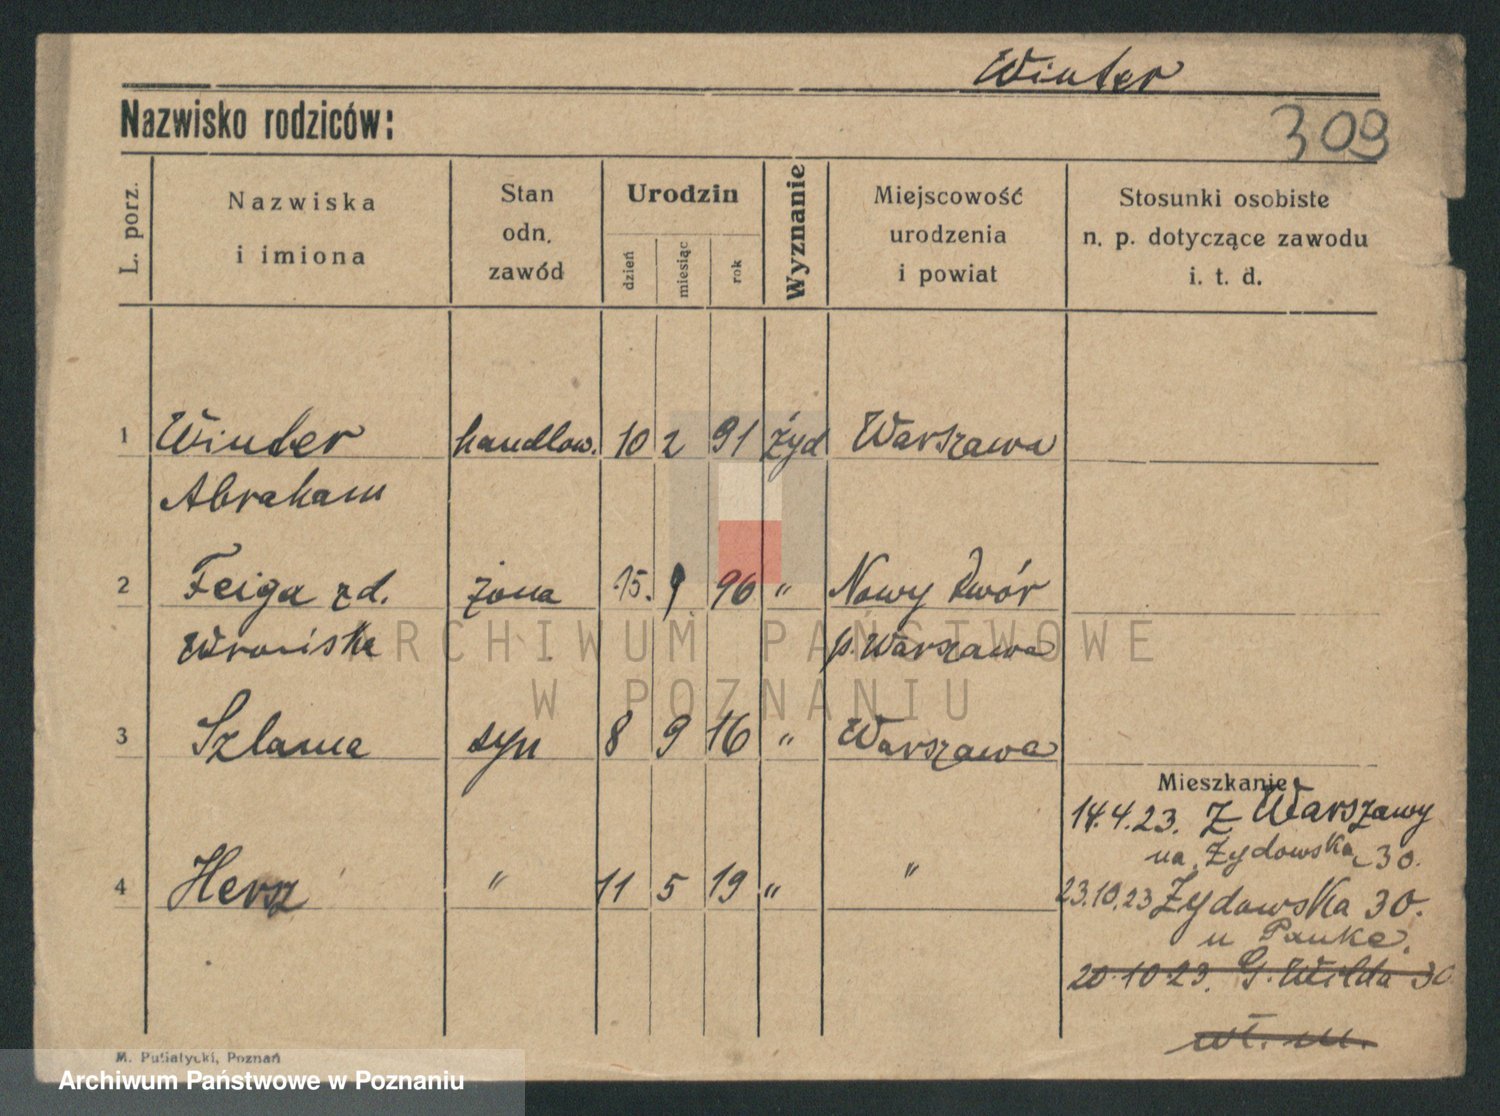 Winter
Nazwisko rodziców:
309
L. porz.
Nazwiska
i imiona
Stan
odn.
zawód
Urodzin
dzień
miesiąc
rok
Wyznanie
Miejscowość
urodzenia
i powiat
Stosunki osobiste
n. p. dotyczące zawodu
i. t. d.
1 Winter handlow. 10 2 91 żyd Warszawa
Abraham
2 Feiga zd. żona 15. 96 " Nowy Dwór
Wrońska p. Warszawa
3 Szlama syn 8 9 16 " Warszawa
Mieszkanie
14.4.23. Z Warszawy
na Żydowska 30.
4 Hersz " 11 5 19 " "
23.10.23 Żydowska 30.
u
20.10.23. G. Wilda 30
wł. m.
M. Putiatycki, Poznań
ARCHIWUM PAŃSTWOWE
W POZNANIU
Archiwum Państwowe w Poznaniu